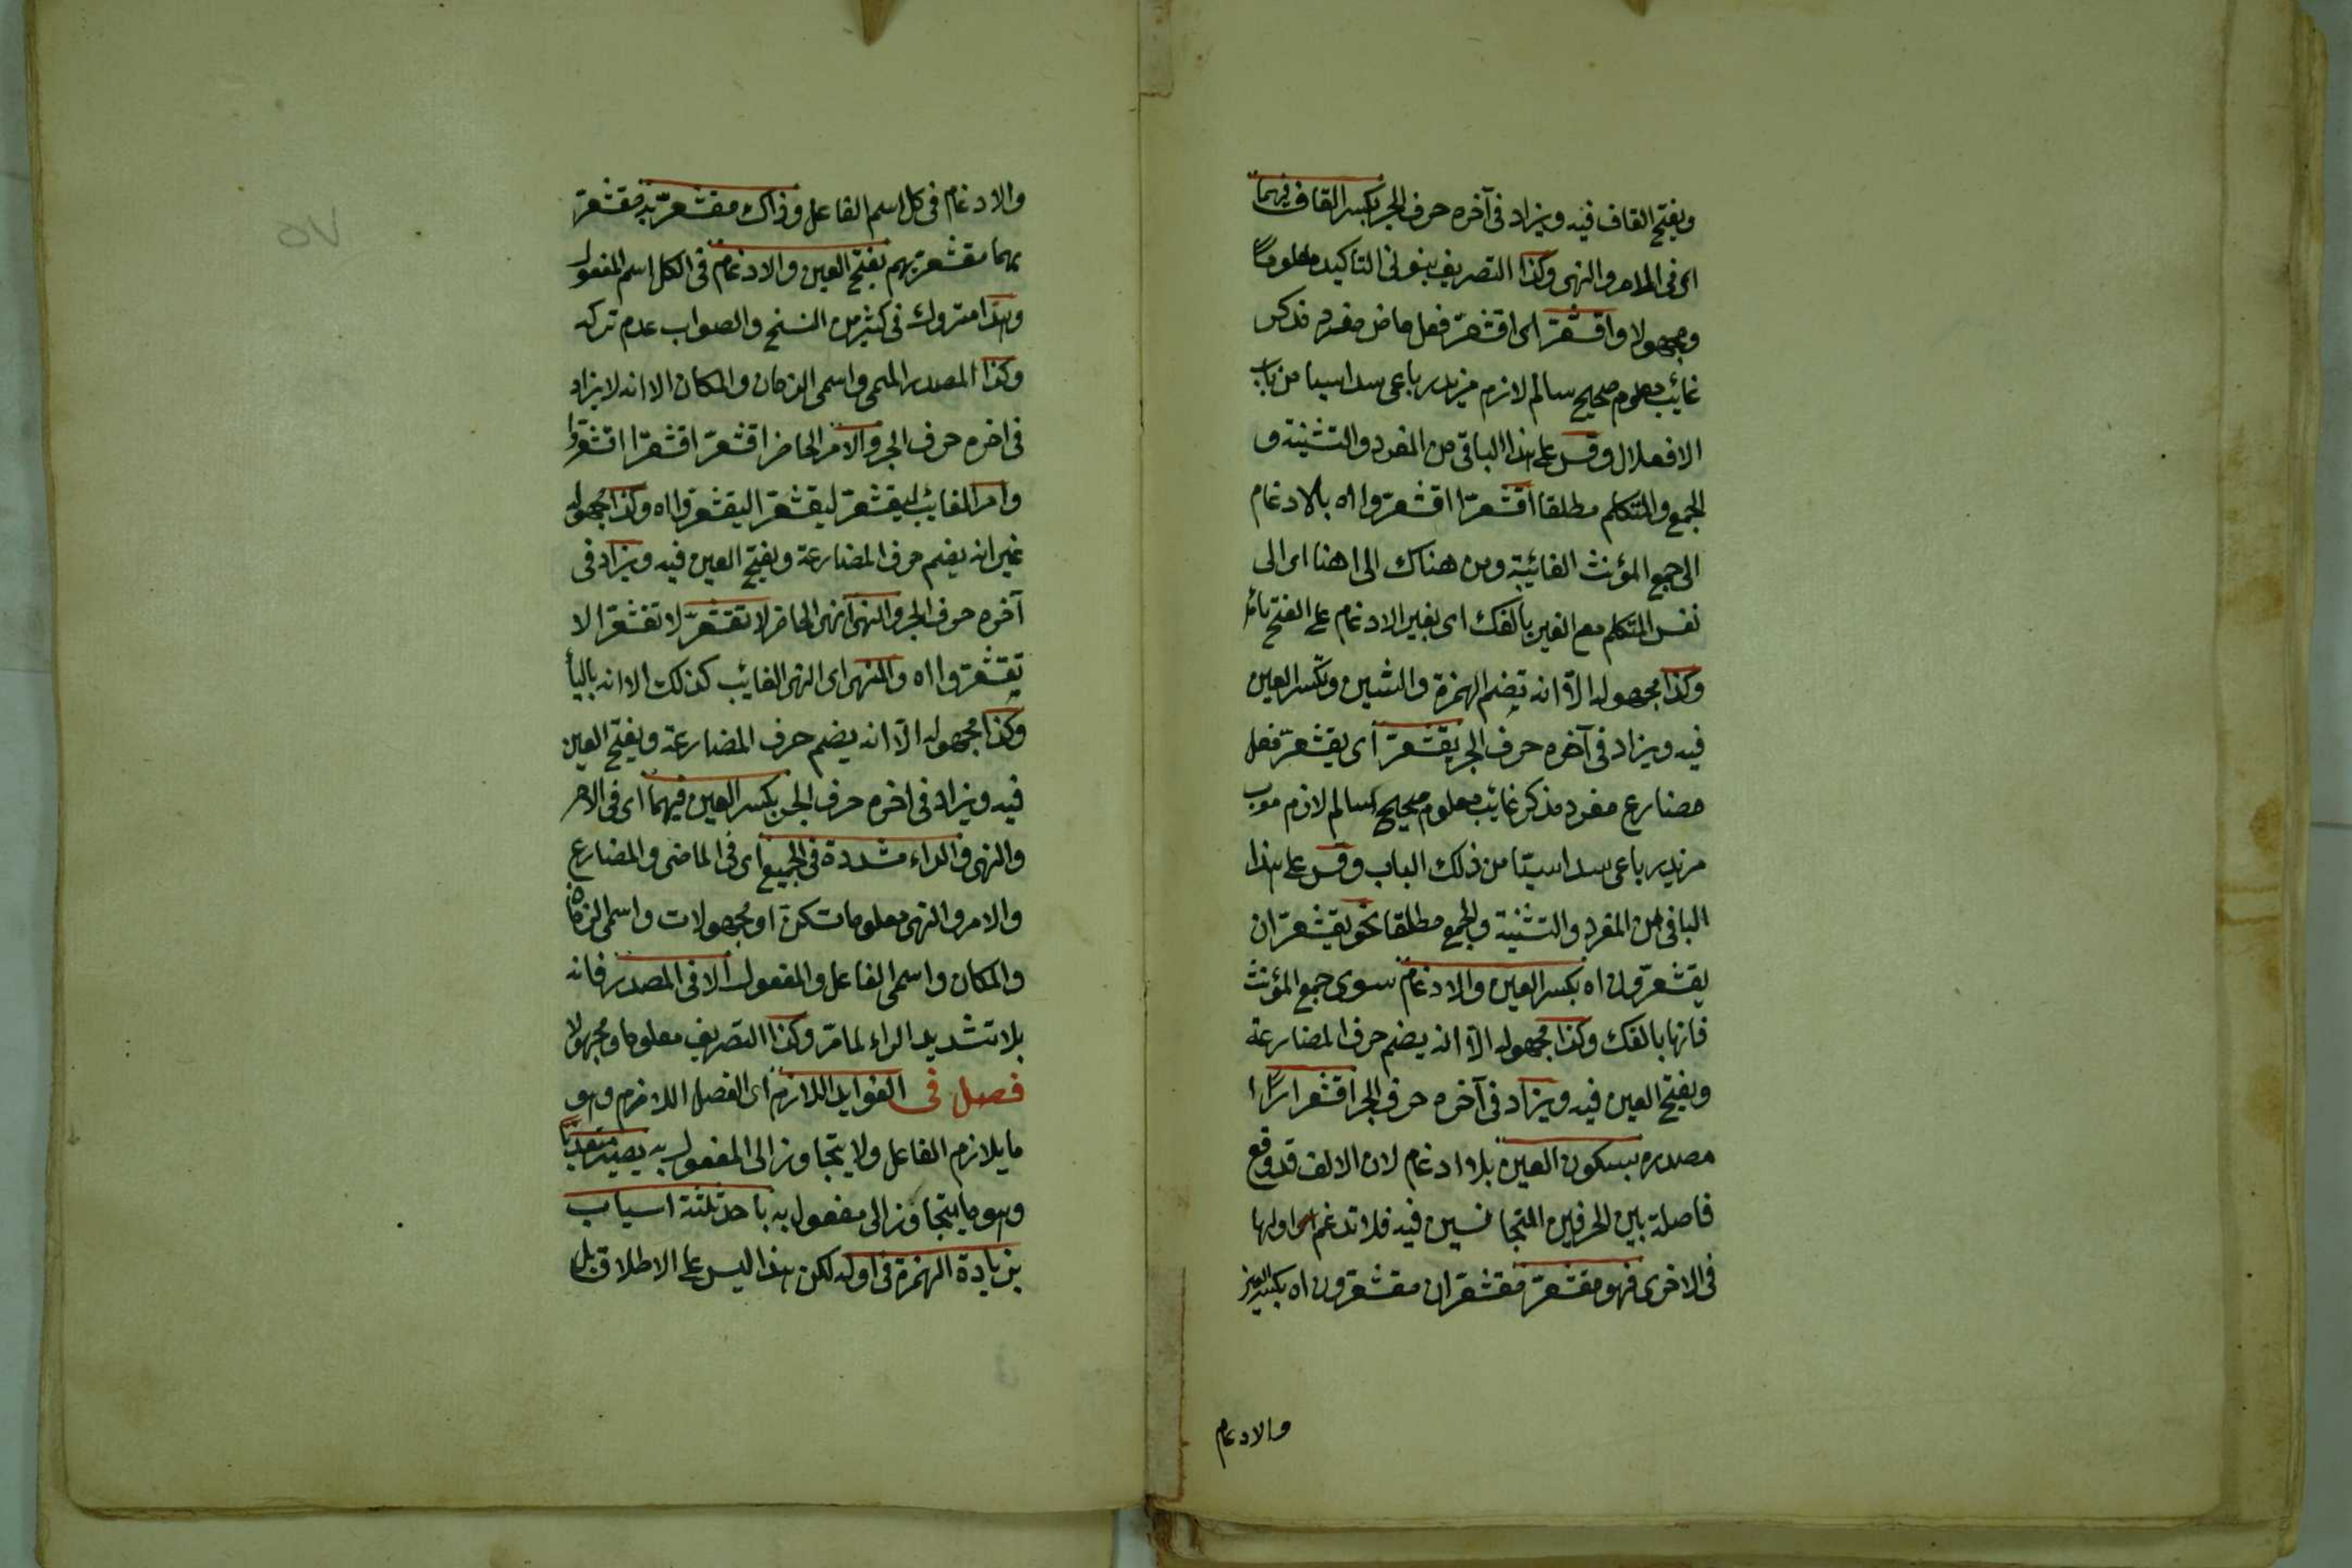 ويفتح القاف فيه ويزاد فى آخره حرف الجر بكسر القاف فيهما
اى فى الامر والنهى وكذا التصريف بنونى التاكيد معلوما
ومجهولا واقشعرّ اى اقشعرّ فعل ماض مفرد مذكر
غائب معلوم صحيح سالم لازم مزيد رباعى سداسيا من باب
الافعلال وقس على هذا الباقى من المفرد والتثنية و
الجمع والمتكلم مطلقا اقشعرّا اقشعرّوا اه بالادغام
الى جمع المؤنث الغائبة ومن هناك الى اهنا اى الى
نفس المتكلم مع الغير بالفك اى بغير الادغام على الفتح
وكذا مجهوله الّا انه تضم الهمزة والشين وتكسر العين
فيه ويزاد فى آخره حرف الجر يقشعرّ اى يقشعرّ فعل
مضارع مفرد مذكر غائب معلوم صحيح سالم لازم معرب
مزيد رباعى سداسيّا من ذلك الباب وقس على هذا
الباقى من المفرد والتثنية والجمع مطلقا نحو يقشعرّان
يقشعرّون اه بكسر العين والادغام سوى جمع المؤنث
فانها بالفك وكذا مجهوله الّا انه يضم حرف المضارعة
ويفتح العين فيه ويزاد فى آخره حرف الجر اقشعرارًا
مصدره بسكون العين بلا ادغام لان الالف قد وقع
فاصلة بين الحرفين المتجانسين فيه فلا تدغم اولها
فى الاخرى فهو مقشعرّ مقشعران مقشعرون اه بكسر العين
والادغام
والادغام فى كل اسم الفاعل وذاك مقشعرّ به مقشعرّ
بهما مقشعرّ بهم بفتح العين والادغام فى الكل اسم المفعول
وهذا متروك فى كثير من النسخ والصواب عدم تركه
وكذا المصدر الميمى واسمى الزمان والمكان الا انه لا يزاد
فى اخره حرف الجر والامر الحاضر اقشعرّ اقشعرّا اقشعرّوا
وامر الغائب ليقشعرّ ليقشعرّا ليقشعرّوا اه وكذا مجهوله
غير انه يضم حرف المضارعة ويفتح العين فيه ويزاد فى
آخره حرف الجر والنهى نهى الحاضر لا تقشعرّ لا تقشعرّا لا
تقشعرّوا اه والنهى اى النهى الغائب كذلك الا انه بالياء
وكذا مجهوله الّا انه يضم حرف المضارعة ويفتح العين
فيه ويزاد فى اخره حرف الجر بكسر العين فيهما اى فى الامر
والنهى والراء مشددة فى الجميع اى فى الماضى والمضارع
والامر والنهى معلومات كن او مجهولات واسمى الزمان
والمكان واسمى الفاعل والمفعول الا فى المصدر فانه
بلا تشديد الراء لما مرّ وكذا التصريف معلوما ومجهولا
فصل فى الفوايد اللازم اى الفصل اللازم وهو
ما يلازم الفاعل ولا يتجاوز الى المفعول به يصير متعديًا
وهو ما يتجاوز الى مفعول به باحد ثلثة اسباب
بزيادة الهمزة فى اوله لكن هذا ليس على الاطلاق بل